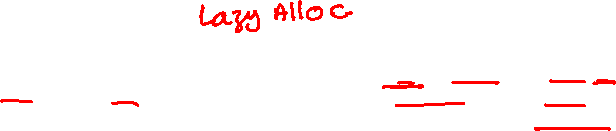 Lazy Alloc